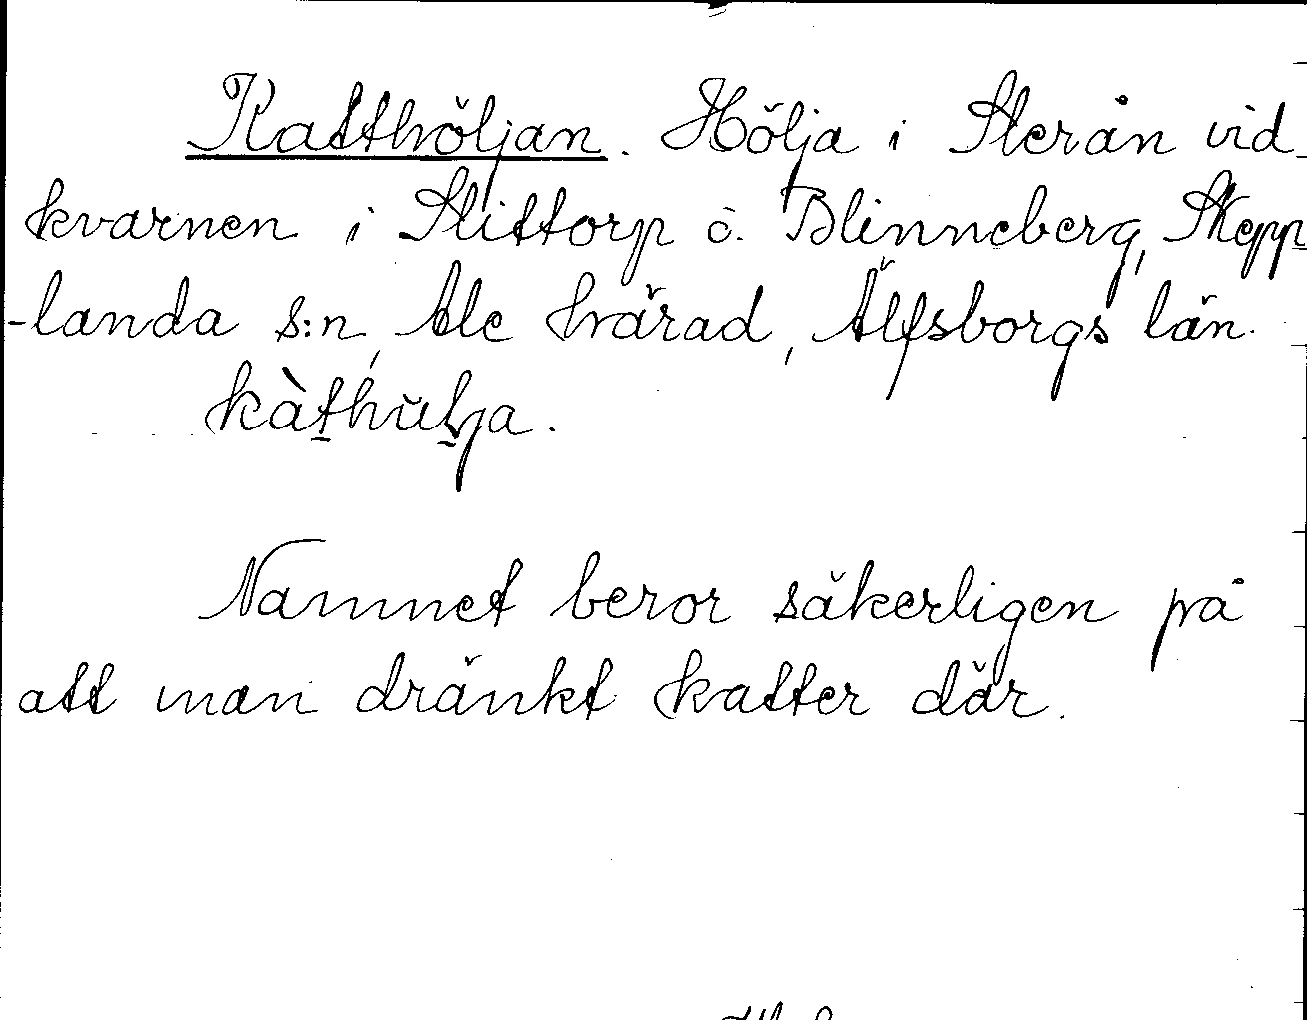 Katthöljan. Hölja i Sterån vid
kvarnen i Slittorp o. Blinneberg, Skepp
-landa s:n, Ale härad, Älfsborgs län.
kàthulja.
Namnet beror säkerligen på
att man dränkt katter där.